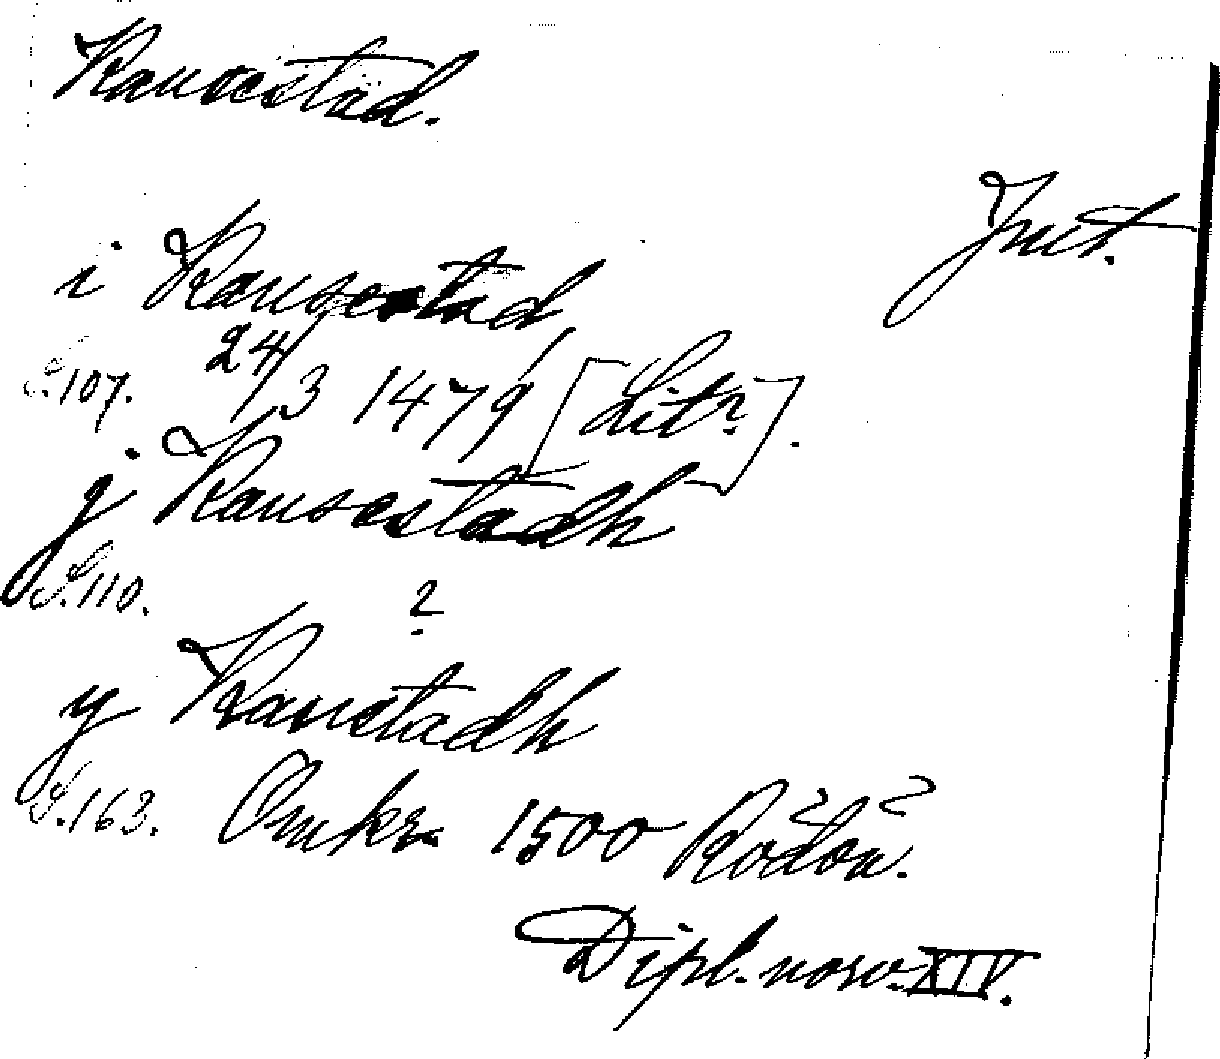 Kausestad.
Jmt.
i Kausestad
S. 107. 24/3 1479 [Litr].
j Kausestadh
S. 110. ?
y Kaustadh
S. 163. Omkr. 1500 Rödön.
Dipl. norv. XIV.